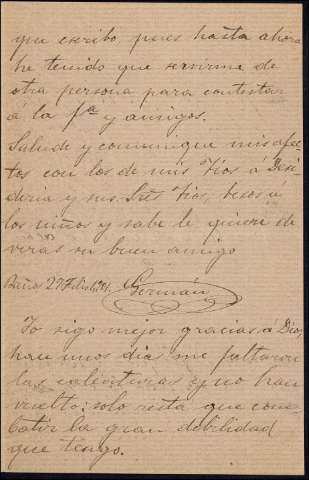 que escribo, pues hasta ahora
he tenido que servirme de
otra persona para contestar
á la fª y amigos.
Salude y comunique mis afec-
tos con los de mis Tios á Desi-
deria y sus Sres Tios, besos á
los niños y sabe le quiere de
veras su buen amigo
Baños 27
Germán
Yo sigo mejor gracias á Dios,
hace unos dias me faltaron
las calenturas y no han
vuelto: solo resta que com-
batir la gran debilidad
que tengo.